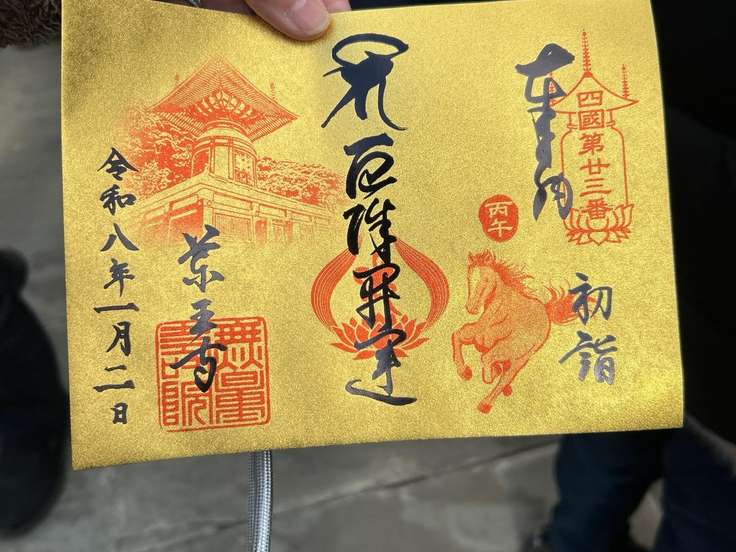 四國第廿三番
奉納
初詣
丙午
厄除開運
薬王寺
無量寿院
令和八年一月二日